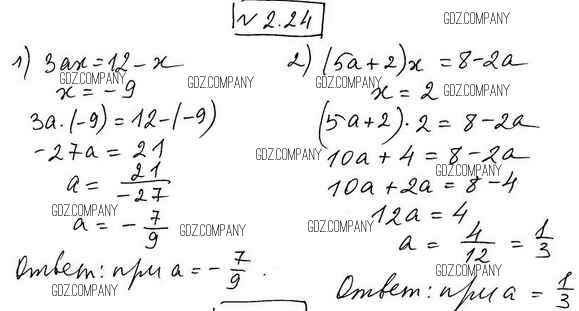 № 2.24
1) 3ax = 12 - x
x = -9
3a·(-9) = 12-(-9)
-27a = 21
a = 21/-27
a = - 7/9
Ответ: при a = - 7/9.
2) (5a+2)x = 8-2a
x = 2
(5a+2)·2 = 8-2a
10a + 4 = 8-2a
10a + 2a = 8-4
12a = 4
a = 4/12 = 1/3
Ответ: при a = 1/3
GDZ.COMPANY
GDZ.COMPANY
GDZ.COMPANY
GDZ.COMPANY
GDZ.COMPANY
GDZ.COMPANY
GDZ.COMPANY
GDZ.COMPANY
GDZ.COMPANY
GDZ.COMPANY
GDZ.COMPANY
GDZ.COMPANY
GDZ.COMPANY